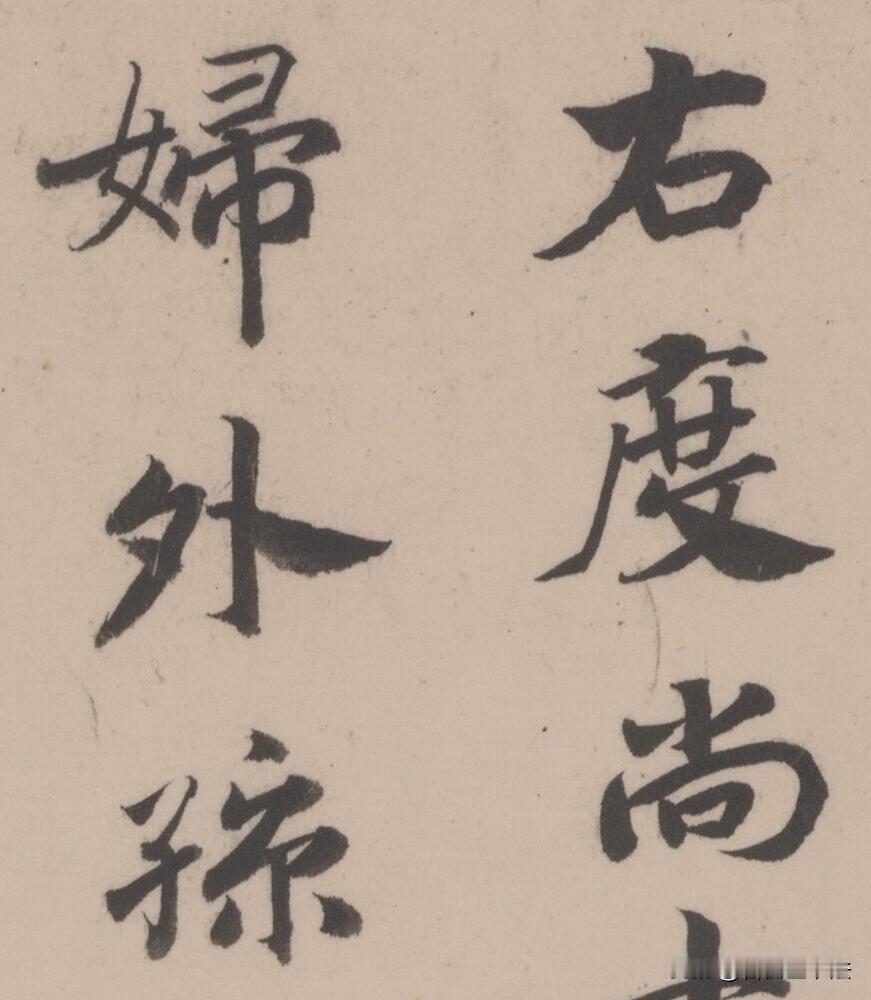 右度尚
婦外孫